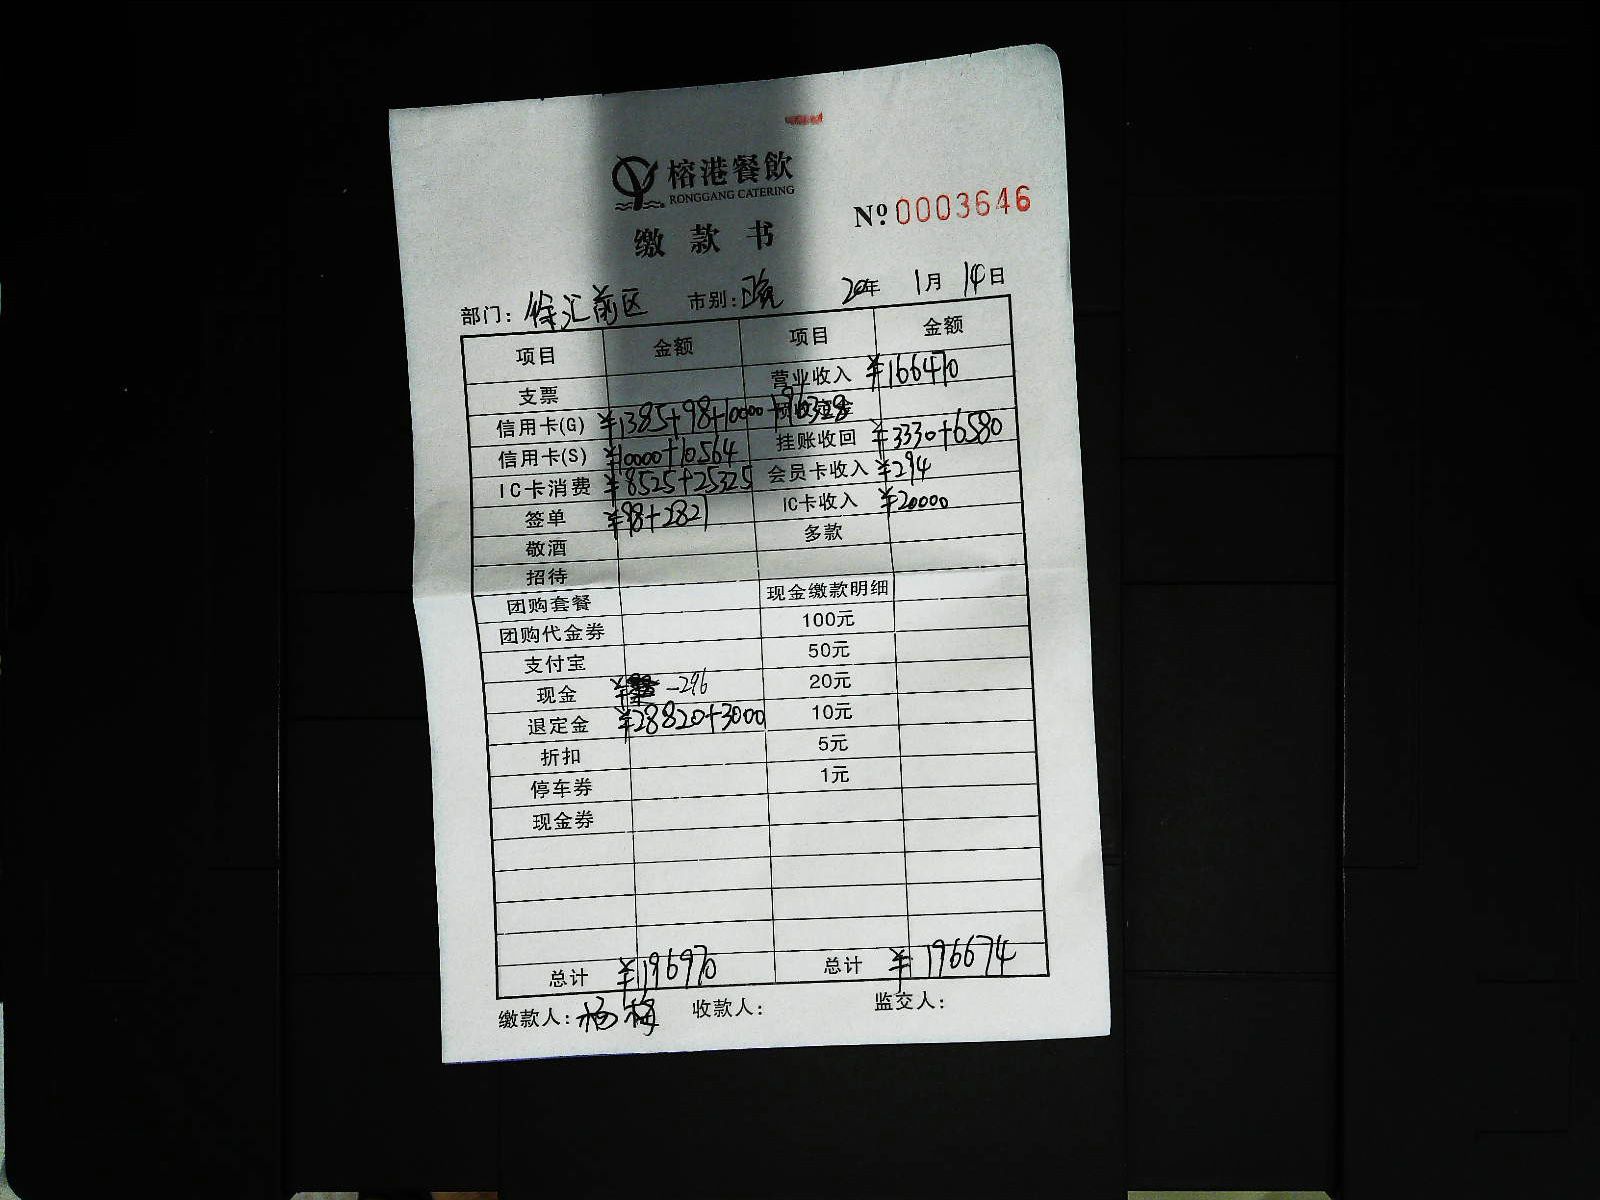 榕港餐飲
RONGGANG CATERING
№ 0003646
缴款书
部门: 徐汇前区 市别: 20年 1月 14日
项目 金额 项目 金额
支票 营业收入 ¥166470
信用卡(G) ¥1385+98+10000+96328
信用卡(S) ¥10000+10564 挂账收回 ¥3330+6580
IC卡消费 ¥8525+25325 会员卡收入 ¥294
签单 ¥98+2821 IC卡收入 ¥20000
敬酒 多款
招待
团购套餐 现金缴款明细
团购代金券 100元
支付宝 50元
现金 ¥ -296 20元
退定金 ¥28820+3000 10元
折扣 5元
停车券 1元
现金券
总计 ¥196970 总计 ¥196674
缴款人: 杨梅 收款人: 监交人: